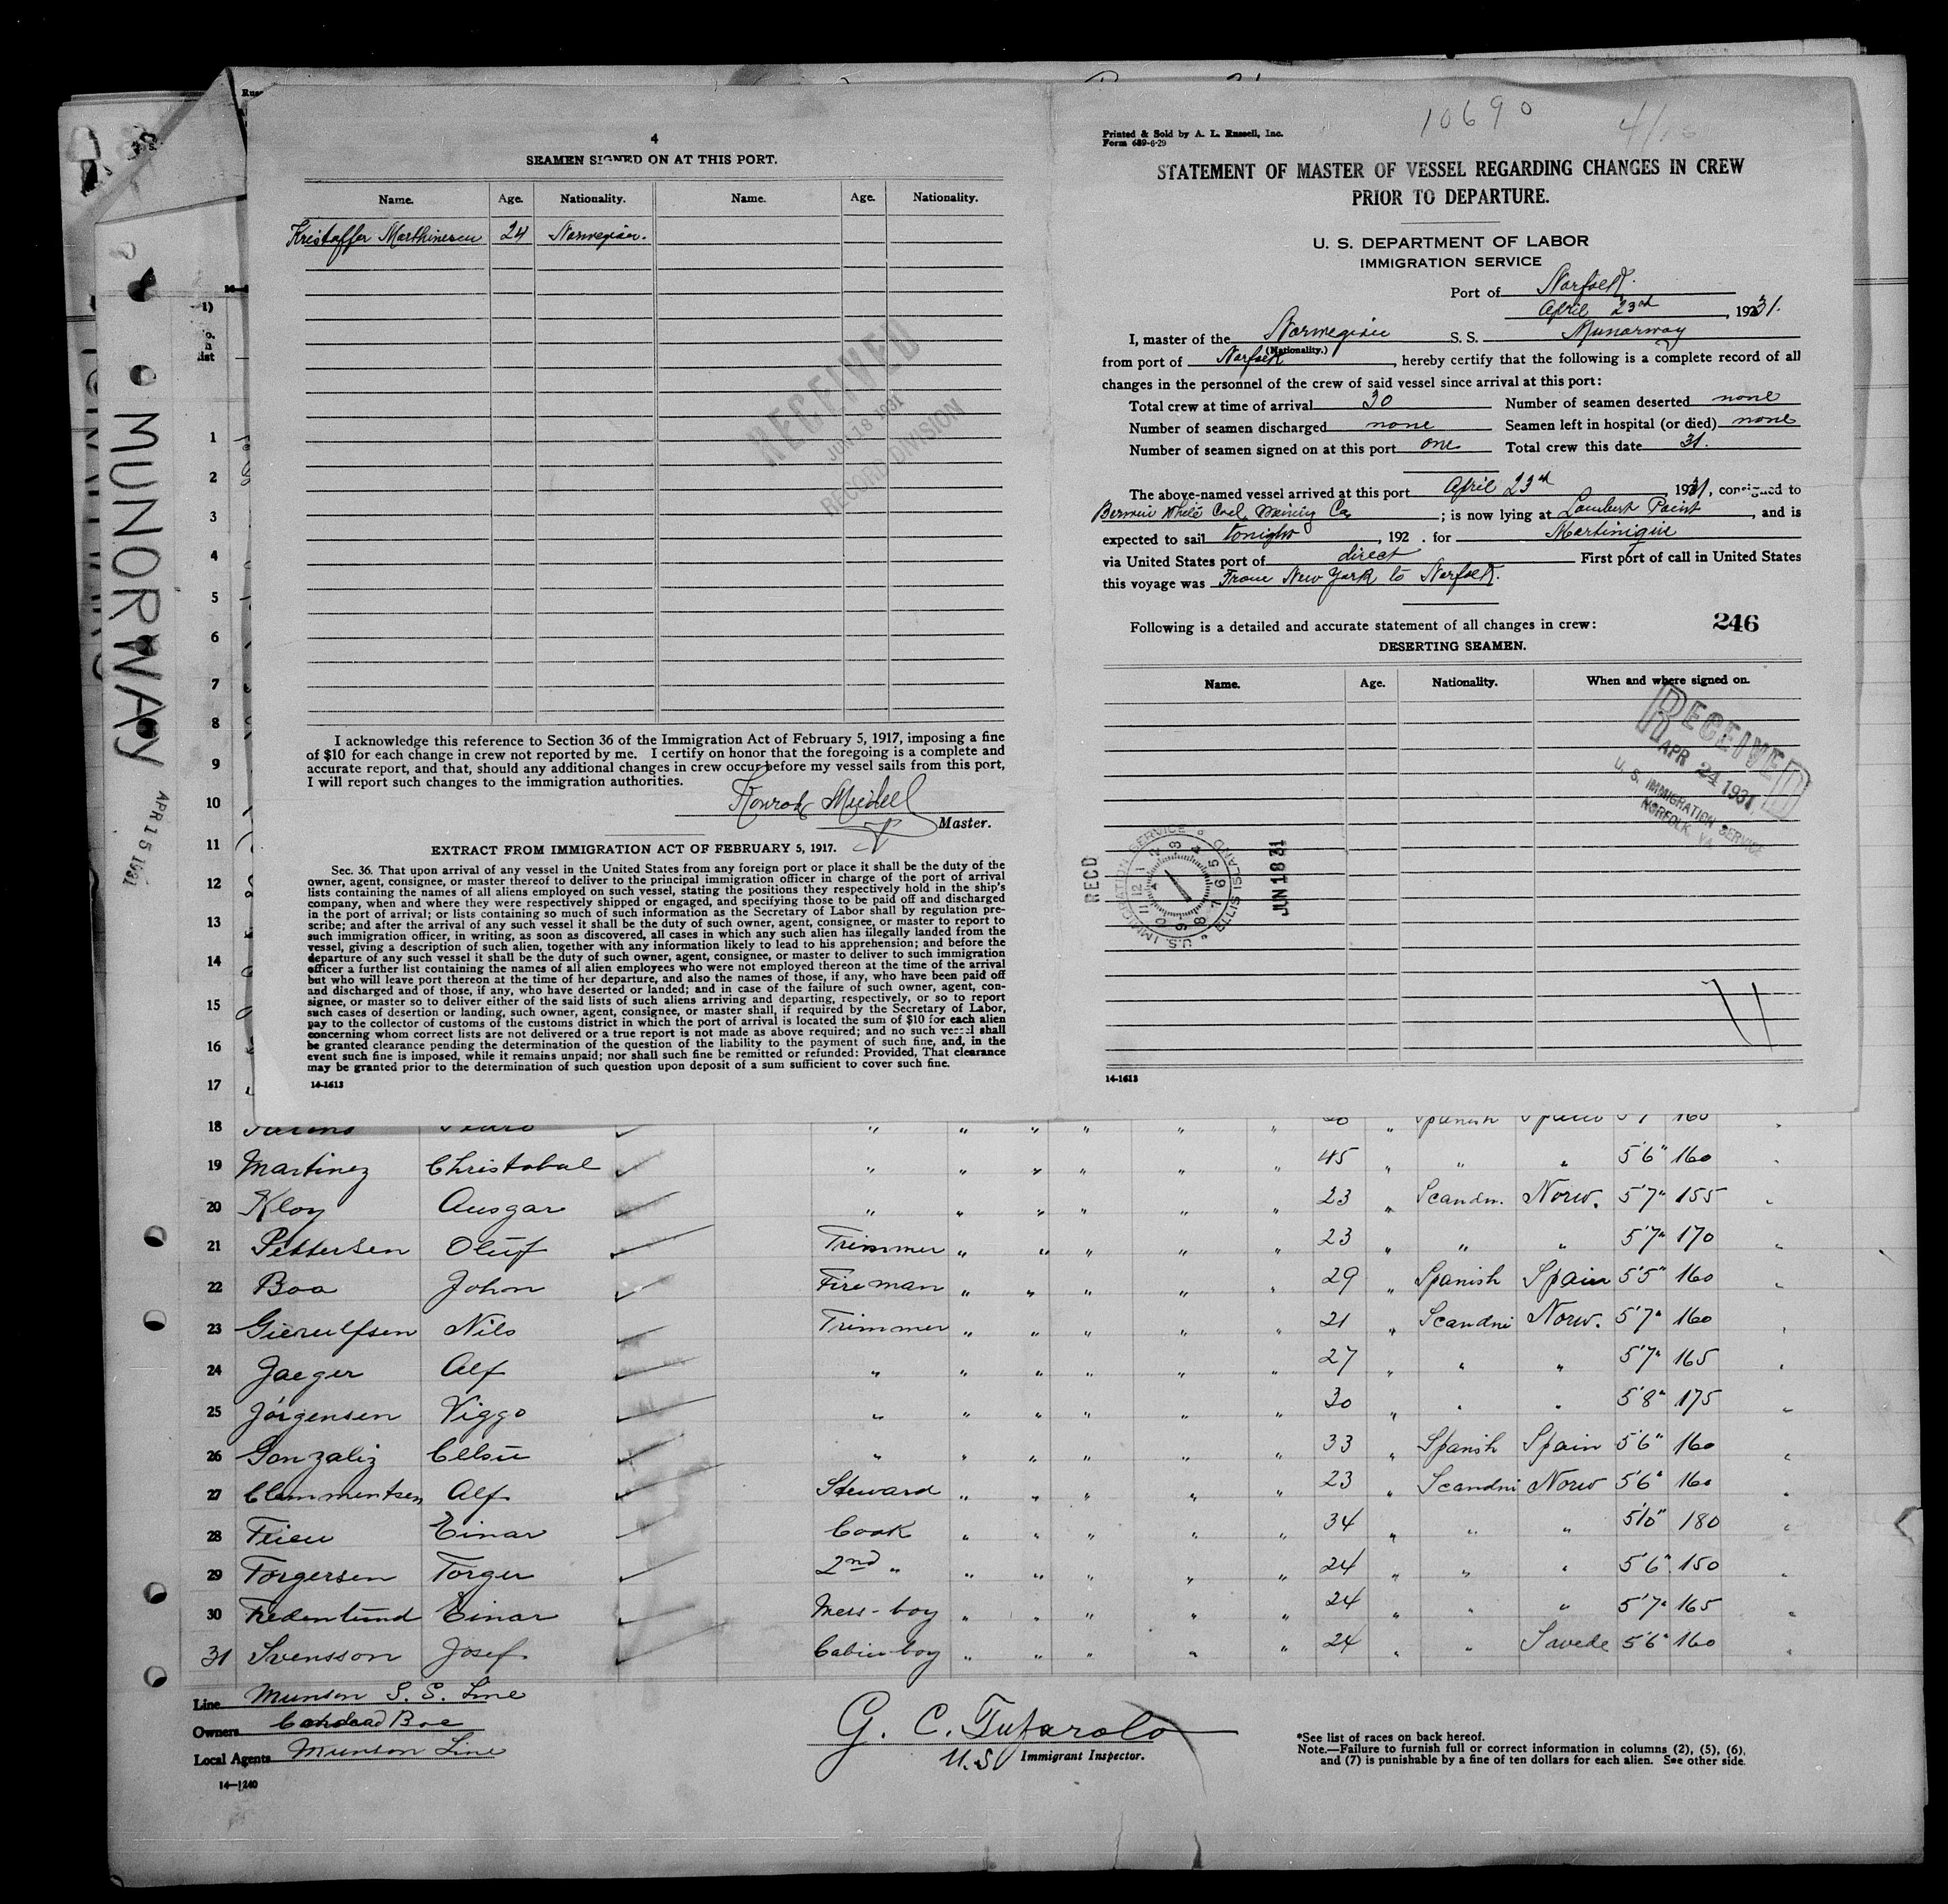 MUNORWAY
APR 15 1931
4
SEAMEN SIGNED ON AT THIS PORT.
Name. Age. Nationality. Name. Age. Nationality.
Kristoffer Marthinesen 24 Norwegian.
RECEIVED
JUN 18 1931
RECORD DIVISION
I acknowledge this reference to Section 36 of the Immigration Act of February 5, 1917, imposing a fine
of $10 for each change in crew not reported by me. I certify on honor that the foregoing is a complete and
accurate report, and that, should any additional changes in crew occur before my vessel sails from this port,
I will report such changes to the immigration authorities.
Master.
EXTRACT FROM IMMIGRATION ACT OF FEBRUARY 5, 1917.
Sec. 36. That upon arrival of any vessel in the United States from any foreign port or place it shall be the duty of the
owner, agent, consignee, or master thereof to deliver to the principal immigration officer in charge of the port of arrival
lists containing the names of all aliens employed on such vessel, stating the positions they respectively hold in the ship's
company, when and where they were respectively shipped or engaged, and specifying those to be paid off and discharged
in the port of arrival; or lists containing so much of such information as the Secretary of Labor shall by regulation pre-
scribe; and after the arrival of any such vessel it shall be the duty of such owner, agent, consignee, or master to report to
such immigration officer, in writing, as soon as discovered, all cases in which any such alien has illegally landed from the
vessel, giving a description of such alien, together with any information likely to lead to his apprehension; and before the
departure of any such vessel it shall be the duty of such owner, agent, consignee, or master to deliver to such immigration
officer a further list containing the names of all alien employees who were not employed thereon at the time of the arrival
but who will leave port thereon at the time of her departure, and also the names of those, if any, who have been paid off
and discharged and of those, if any, who have deserted or landed; and in case of the failure of such owner, agent, con-
signee, or master so to deliver either of the said lists of such aliens arriving and departing, respectively, or so to report
such cases of desertion or landing, such owner, agent, consignee, or master shall, if required by the Secretary of Labor,
pay to the collector of customs of the customs district in which the port of arrival is located the sum of $10 for each alien
concerning whom correct lists are not delivered or a true report is not made as above required; and no such vessel shall
be granted clearance pending the determination of the question of the liability to the payment of such fine, and, in the
event such fine is imposed, while it remains unpaid; nor shall such fine be remitted or refunded: Provided, That clearance
may be granted prior to the determination of such question upon deposit of a sum sufficient to cover such fine.
14-1613
10690
Printed & Sold by A. L. Russell, Inc.
Form 689-6-29
STATEMENT OF MASTER OF VESSEL REGARDING CHANGES IN CREW
PRIOR TO DEPARTURE.
U. S. DEPARTMENT OF LABOR
IMMIGRATION SERVICE
Port of Norfolk.
April 23rd, 1931.
I, master of the Norwegian S. S. Munorway
(Nationality.)
from port of Norfolk, hereby certify that the following is a complete record of all
changes in the personnel of the crew of said vessel since arrival at this port:
Total crew at time of arrival 30 Number of seamen deserted none
Number of seamen discharged none Seamen left in hospital (or died) none
Number of seamen signed on at this port one Total crew this date 31.
The above-named vessel arrived at this port April 23rd, 1931, consigned to
Berwin White Coal Mining Co; is now lying at Lambert Point, and is
expected to sail tonight, 192 . for Martinique
via United States port of direct First port of call in United States
this voyage was From New York to Norfolk.
Following is a detailed and accurate statement of all changes in crew: 246
DESERTING SEAMEN.
Name. Age. Nationality. When and where signed on.
RECEIVED
APR 24 1931
U. S. IMMIGRATION SERVICE
NORFOLK, VA.
RECD
U.S. IMMIGRATION SERVICE ELLIS ISLAND
JUN 18 31
14-1613
1
2
3
4
5
6
7
8
9
10
11
12
13
14
15
16
17
18 " " " " " " " Spanish Spain 160
19 Martinez Christobal " " " " " " 45 " " " 5'6" 160
20 Kloy Ausgar " " " " " " 23 " Scandn. Norw. 5'7" 155
21 Pettersen Oluf Trimmer " " " " " 23 " " " 5'7" 170
22 Boa John Fireman " " " " " 29 " Spanish Spain 5'5" 160
23 Gierulfsen Nils Trimmer " " " " " 21 " Scandni Norw. 5'7" 160
24 Jaeger Alf " " " " " " 27 " " " 5'7" 165
25 Jörgensen Viggo " " " " " " 30 " " " 5'8" 175
26 Gonzaliz Celsu " " " " " " 33 " Spanish Spain 5'6" 160
27 Clemmentsen Alf Steward " " " " " 23 " Scandni Norw 5'6" 160
28 Einar Cook " " " " " 34 " " " 5'10" 180
29 Torgersen Torger 2nd " " " " " " 24 " " " 5'6" 150
30 Fredenlund Einar Mess-boy " " " " " 24 " " " 5'7" 165
31 Svensson Josef Cabin boy " " " " " 24 " " Swede 5'6" 160
Line Munson S. S. Line
Owners
Local Agents Munson Line
14-1240
G. C. Tufarolo
U.S Immigrant Inspector.
*See list of races on back hereof.
Note.—Failure to furnish full or correct information in columns (2), (5), (6),
and (7) is punishable by a fine of ten dollars for each alien. See other side.